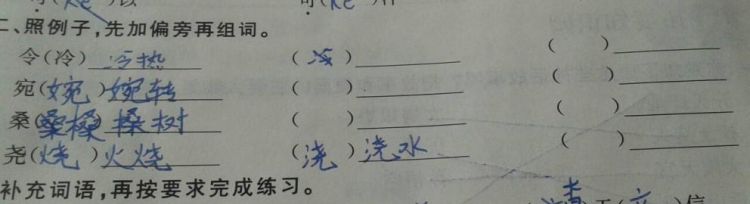 可(kě)以 可(kè)汗
二、照例子,先加偏旁再组词。
令(冷)冷热 (冷) ( )
宛(婉)婉转 ( ) ( )
桑( 槡)槡树 ( ) ( )
尧(烧)火烧 (浇)浇水 ( )
补充词语,再按要求完成练习。